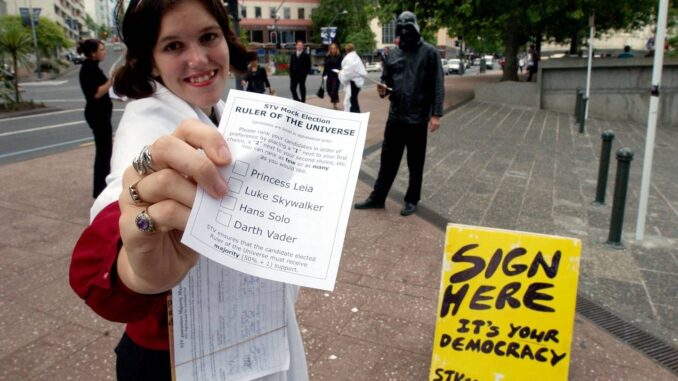 STV Mock Election
RULER OF THE UNIVERSE
Please rank your candidates in order of
preference by placing a "1" next to your first
choice, a "2" next to your second choice, etc.
You can rank as few or as many
as you would like.
Princess Leia
Luke Skywalker
Hans Solo
Darth Vader
STV ensures that the candidate elected
Ruler of the Universe must receive
majority (50% + 1) support.
SIGN
HERE
IT'S YOUR
DEMOCRACY
STV